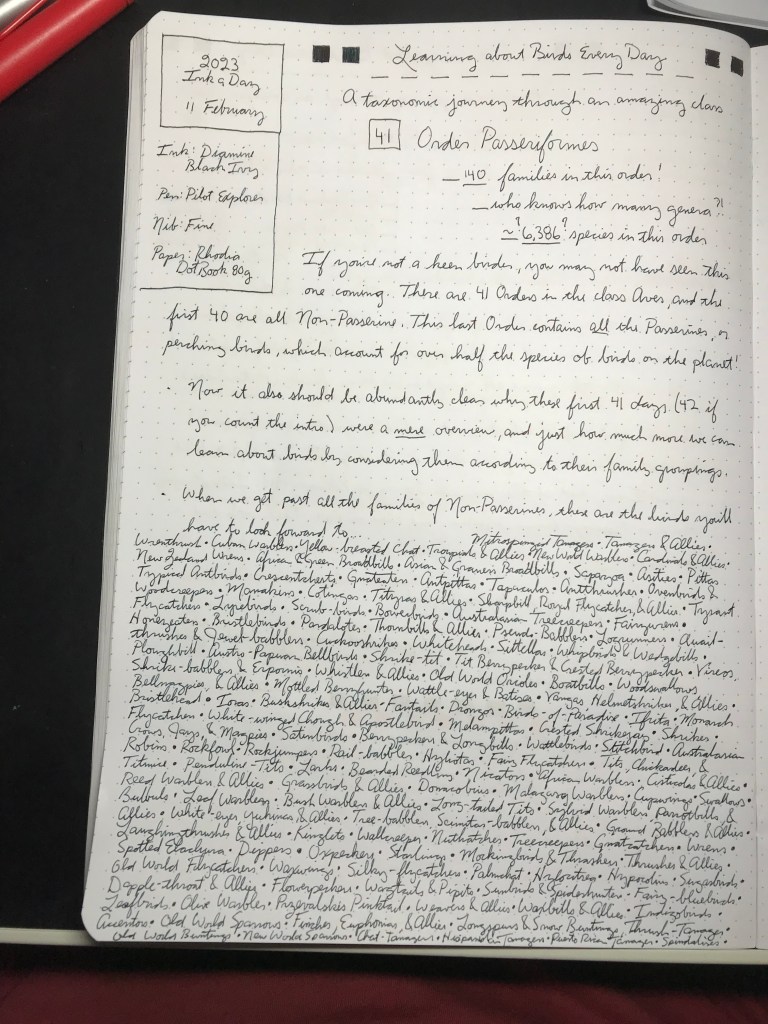 2023
Ink a Day
11 February
Ink: Diamine
Black Ivy
Pen: Pilot Explorer
Nib: Fine
Paper: Rhodia
DotBook 80g
Learning about Birds Every Day
A taxonomic journey through an amazing class
41 Order Passeriformes
— 140 families in this order!
— who knows how many genera?!
~ ?6,386? species in this order
If you're not a keen birder, you may not have seen this
one coming. There are 41 Orders in the class Aves, and the
first 40 are all Non-Passerine. This last Order contains all the Passerines, or
perching birds, which account for over half the species of birds on the planet!
· Now it also should be abundantly clear why these first 41 days (42 if
you count the intro) were a mere overview, and just how much more we can
learn about birds by considering them according to their family groupings.
· When we get past all the families of Non-Passerines, these are the birds you'll
have to look forward to...
Mitrospingid Tanagers · Tanagers & Allies ·
Wrenthrush · Cuban Warblers · Yellow-breasted Chat · Troupials & Allies · New World Warblers · Cardinals & Allies ·
New Zealand Wrens · African & Green Broadbills · Asian & Grauer's Broadbills · Sapayoa · Asities · Pittas ·
Typical Antbirds · Crescentchests · Gnateaters · Antpittas · Tapaculos · Antthrushes · Ovenbirds &
Woodcreepers · Manakins · Cotingas · Tityras & Allies · Sharpbill, Royal Flycatcher, & Allies · Tyrant
Flycatchers · Lyrebirds · Scrub-birds · Bowerbirds · Australasian Treecreepers · Fairywrens ·
Honeyeaters · Bristlebirds · Pardalotes · Thornbills & Allies · Pseudo-Babblers · Logrunners · Quail-
thrushes & Jewel-babblers · Cuckooshrikes · Whiteheads · Sittellas · Whipbirds & Wedgebills ·
Ploughbill · Austro-Papuan Bellbirds · Shrike-tit · Tit Berrypecker & Crested Berrypecker · Vireos,
Shrike-babblers & Erpornis · Whistlers & Allies · Old World Orioles · Boatbills · Woodswallows
Bellmagpies, & Allies · Mottled Berryhunter · Wattle-eyes & Batises · Vangas, Helmetshrikes, & Allies ·
Bristlehead · Ioras · Bushshrikes & Allies · Fantails · Drongos · Birds-of-Paradise · Ifrita · Monarch
Flycatchers · White-winged Chough & Apostlebird · Melampittas · Crested Shrikejay · Shrikes ·
Crows, Jays, & Magpies · Satinbirds · Berrypeckers & Longbills · Wattlebirds · Stitchbird · Australasian
Robins · Rockfowl · Rockjumpers · Rail-babbler · Hyliotas · Fairy Flycatchers · Tits, Chickadees, &
Titmice · Penduline-Tits · Larks · Bearded Reedling · Nicators · African Warblers · Cisticolas & Allies ·
Reed Warblers & Allies · Grassbirds & Allies · Donacobius · Malagasy Warblers · Cupwings · Swallows ·
Bulbuls · Leaf Warblers · Bush Warblers & Allies · Long-tailed Tits · Sylviid Warblers, Parrotbills, &
Allies · White-eyes, Yuhinas & Allies · Tree-babblers, Scimitar-babblers, & Allies · Ground Babblers & Allies
Laughingthrushes & Allies · Kinglets · Wallcreeper · Nuthatches · Treecreepers · Gnatcatchers · Wrens ·
Spotted Elachura · Dippers · Oxpeckers · Starlings · Mockingbirds & Thrashers · Thrushes & Allies ·
Old World Flycatchers · Waxwings · Silky-flycatchers · Palmchat · Hylocitrea · Hypocolius · Sugarbirds ·
Dapple-throat & Allies · Flowerpeckers · Wagtails & Pipits · Sunbirds & Spiderhunters · Fairy-bluebirds ·
Leafbirds · Olive Warbler · Przevalski's Pinktail · Weavers & Allies · Waxbills & Allies · Indigobirds ·
Accentors · Old World Sparrows · Finches, Euphonias, & Allies · Longspurs & Snow Buntings, Thrush-Tanager
Old World Buntings · New World Sparrows · Chat-Tanagers · Hispaniolan Tanagers · Puerto Rican Tanager · Spindalises ·